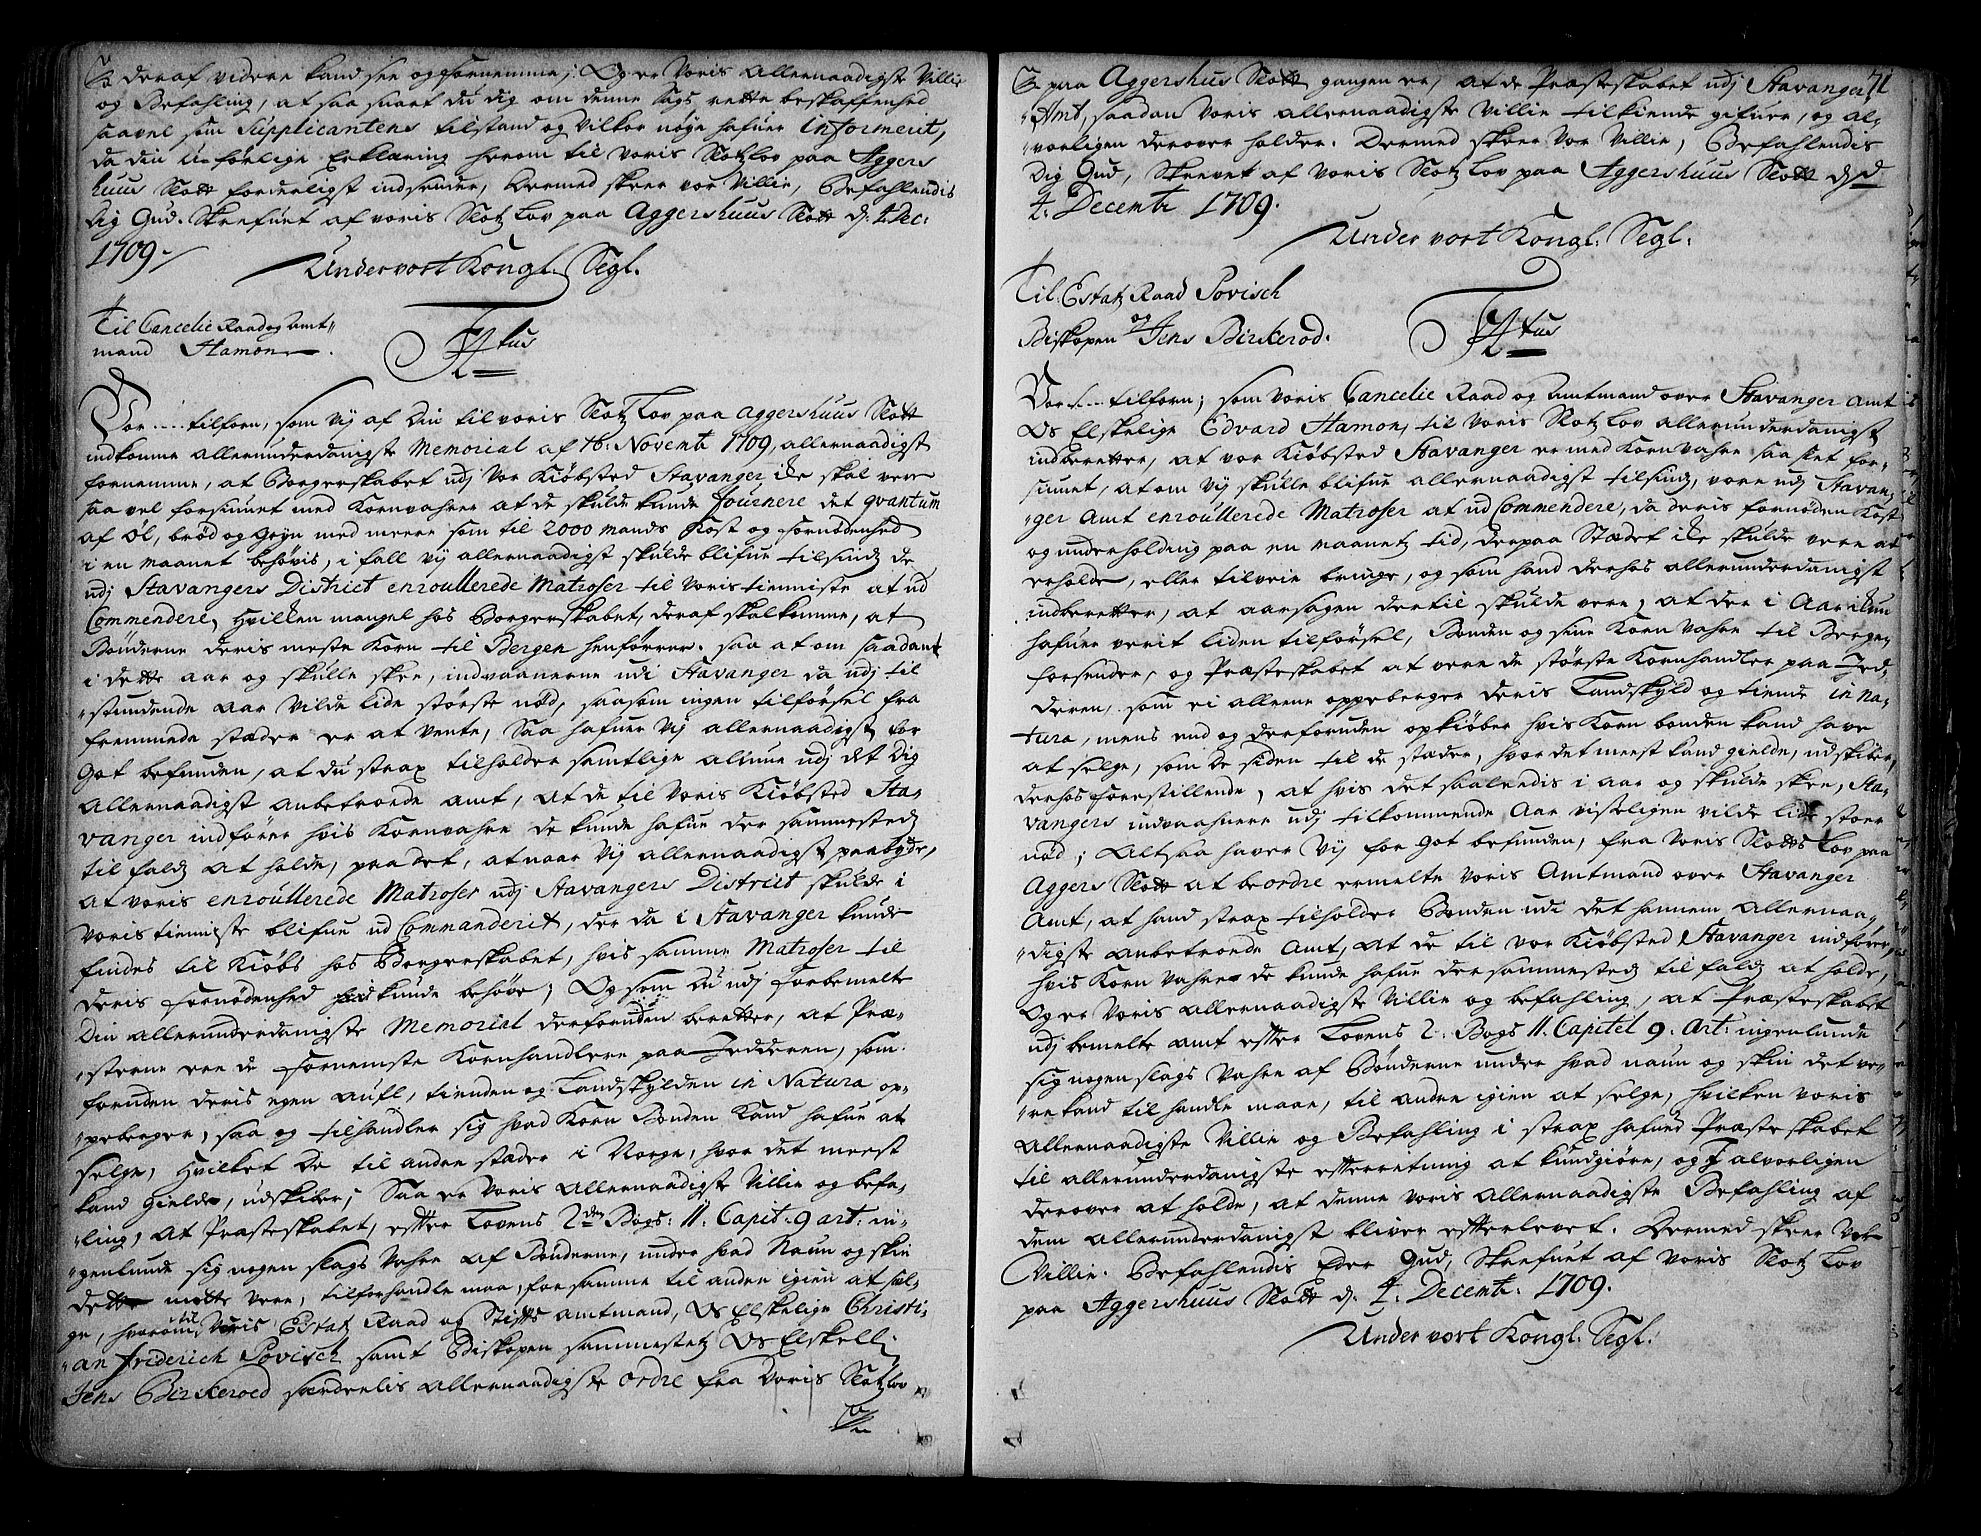 deraf videre kand see og fornemme; Og er Voris Allernaadigste Villie
og Befahling, at saa snart du dig om denne Sags rette beskaffenhed
saavel som Supplicantens tilstand og Vilkor nøye hafuer informerit,
da din udførlige Erklæring herom til Voris Slotz Lov paa Aggers
huus Slott forderligst indsender, Dermed skeer vor Villie, Befahlendis
Dig Gud. Skrefuet af voris Slotz Lov paa Aggershuus Slott d: 4. Dec:
1709.
Under vort Kongl. Segl.
Til Cancelie Raad og Amt-
mand Hamon.
Ftus
Vor .... tilforn, som vij af Din til voris Slotz Lov paa Aggershuus Slott
indkomne allerunderdanigste Memorial af 16. Novemb 1709, allernaadigst
fornemme, at Borgerskabet udj Vor Kiøbsted Stavanger icke skal vere
saa vel forsiunet med Kornvahrer at de skulde kunde fournere det qvantum
af Øl, brød og Gryn med meere som til 2000 mands Kost og fornødenhed
i en maanet behøvis, i fall vij allernaadigst skulde blifue tilsindz de
udj Stavangers District enroullerede Matroser til Voris tienniste at ud
Commendere, Hvilcken mangel hos Borgerskabet, deraf skal komme, at
Bønderne deris meste Korn til Bergen henfører. saa at om saadant
i dette aar og skulle skee, indvaanerne udi Stavanger da udj til
-stundende Aar Vilde lide største nød, saasom ingen tilførsel fra
fremmede stæder er at vente, Saa hafuer Vij allernaadigst for
Got befunden, at du strax tilholder samtlige almue udj det Dig
Allernaadigst anbetroede Amt, at de til Voris Kiøbsted Sta-
vanger indfører hvis Kornvahre de kunde hafue der sammesteds
til falds at holde, paa det, at naar Vij allernaadigst paabyde,
at voris enroullerede Matroser udj Stavangers District skulde i
Voris tienniste blifue ud Commanderit, der da i Stavanger kunde
findes til Kiøbs hos Borgerskabet, hvis samme Matroser til
deris fornødenhed kunde behøve; Og som Du udj forbemelte
Din allerunderdanigste Memorial derforuden beretter, at Præ-
-sterne ere de fornemste Kornhandlere paa Jedderen, som
foruden deris egen aufl, tienden og Landskylden in Natura op-
-peberger, saa og tilhandler sig hvad Korn Bonden Kand hafue at
selge, Hvilket De til andre stæder i Norge, hvor det meest
kand Gielde, udskiber; Saa er Voris Allernaadigste Villie og befa-
-ling, at Præsteskabet, efter Lovens 2den Bogs: 11. Capit. 9 art: in-
-genlunde sig nogen slags Vahre af Bønderne, under hvad Naun og skin
dette motte vere, tilforhandle maa, for samme til andre igien at sæl-
ge, hvorom Voris Estatz Raad og Stifts amtmand, Os Elskelige Christi-
-an Friderich Povisch samt Biskopen sammestetz Os Elskelli:
Jens Birkeroed særdeelis allernaadigste ordre fra Voris Slotz Lov
71
paa Aggershuus Slott gangen er, at de Præsteskabet udj Stavanger
Amt, saadan Voris allernaadigste Villie tilkiende gifuer, og al-
-vorligen derover holder. Dermed skeer Vor Villie, Befahlendis
Dig Gud, Skrevet af Voris Slotz Lov paa Aggershuus Slott d:
4. Decemb 1709.
Under vort Kongl: Segl.
Til Estatz Raad Povisch
og
Biskopen Jens Birkerod.
Ftus
Vor .... tilforn; som Voris Cancelie Raad og Amtmand over Stavanger Amt
Os Elskelige Edvard Hamon, til Voris Slotz Lov allerunderdanigst
indberetter, at vor Kiøbsted Stavanger er med Kornvahre saa slet for-
siunet, at om Vij skulle blifue allernaadigst tilsindz, vore udj Stavan-
-ger Amt enroullerede Matroser at ud Commendere, da deris fornøden Kost
og underholding paa en maanetz tid, der paa Stædet icke skulde vere at
erholde, eller tilveie bringe, og som hand derhos allerunderdanigst
indberetter, at aarsagen dertil skulde vere, at der i Aar ickun
hafuer verit liden tilførsel, Bonden og sine Korn Vahre til Bergen
forsender, og Præsteskabet at vere de største Kornhandler paa Jed-
deren, som ei alleene oppeberger deris Landskyld og tiende in na-
tura, mens end og derforuden opkiøber hvis Korn bonden kand have
at selge, som de siden til de stæder, hvor det meest kand gielde, udskiber,
derhos forestillende, at hvis det saaledis i aar og skulde skee, Sta-
vangers indvaahnere udj tilkommende Aar visseligen vilde lide stoer
nød; Altsaa haver Vij for Got befunden, fra Voris Slotts Lov paa
Aggers Slott at beordre ermelte Voris Amtmand over Stavanger
Amt, at hand strax tilholder Bonden udi det hannem allernaa-
-digste anbetroede Amt, at de til vor Kiøbsted Stavanger indfører,
hvis Korn Vahre de kunde hafue dersammesteds til falds at holde,
Og er Voris allernaadigste Villie og befahling, at Præsteskabet
udj bemelte amt efter Lovens 2. Bogs 11. Capitel 9. Art: ingenlunde
sig nogen slags Vahre af Bønderne under hvad naun og skin det ve-
-re kand til handle maae, til andre igien at selge, Hvilken voris
allernaadigste Villie og Befahling i strax hafuer Præsteskabet
til allerunderdanigste efterretning at kundgiøre, og I alvorligen
derover at holde, at denne voris allernaadigste Befahling af
dem allerunderdanigst bliver efterlevet. Dermed skeer Vor
Villie. Befahlendis Eder Gud, Skrefuet af Voris Slotz Lov
paa Aggershuus Slott d. 4. Decemb. 1709.
Under vort Kongl: Segl.